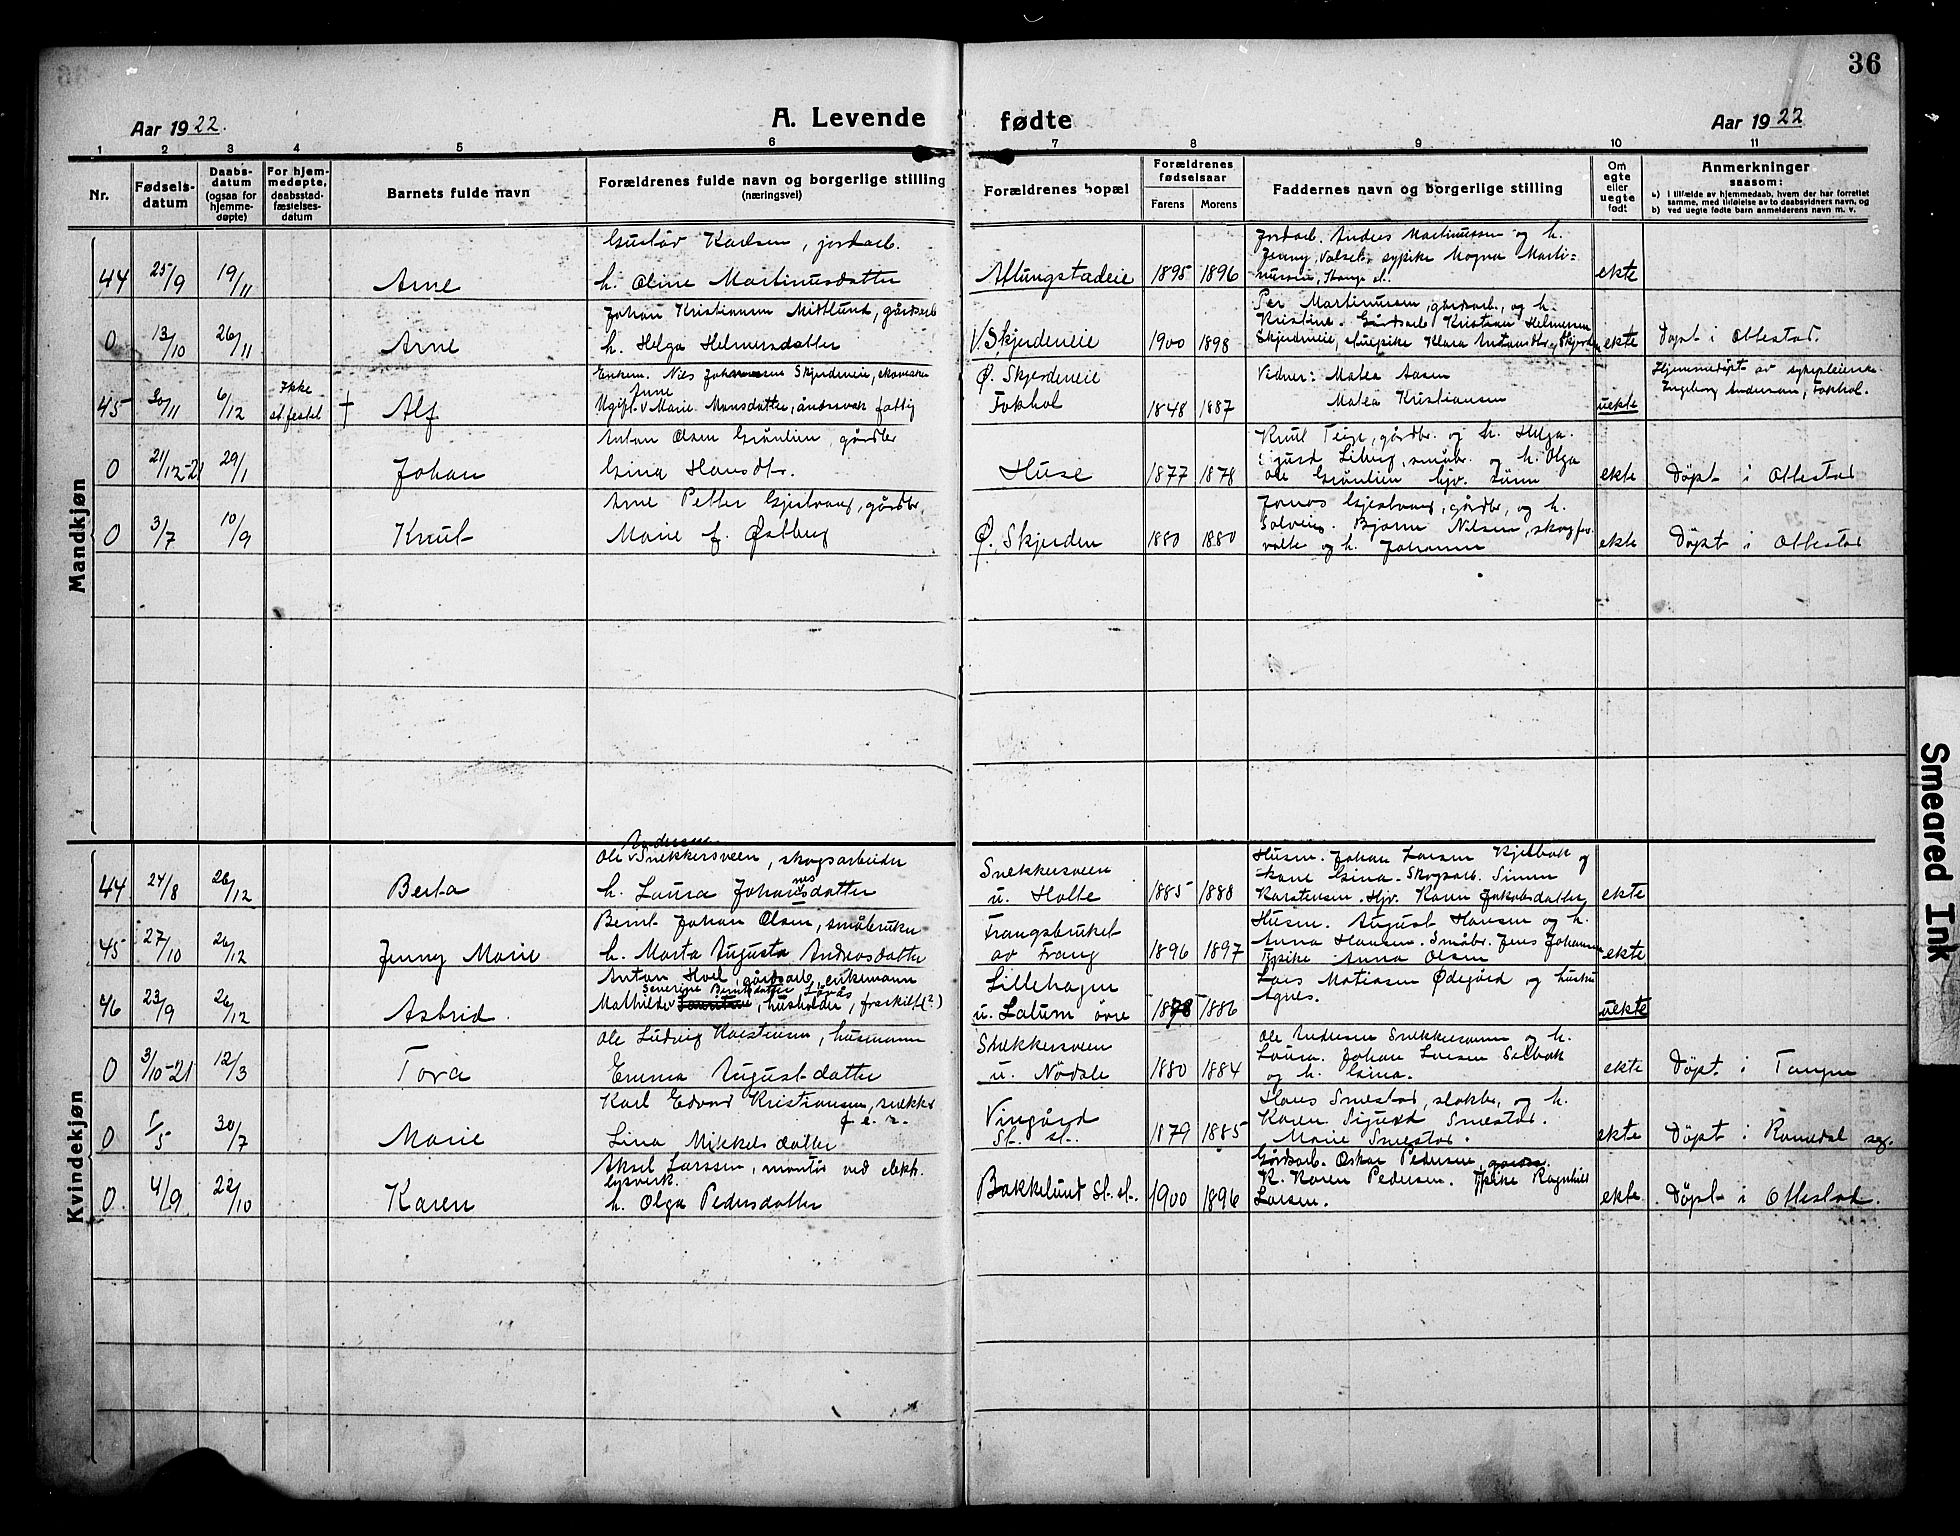 36
Aar 1922.
A. Levende fødte
Aar 1922
1 2 3 4 5 6 7 8 9 10 11
Nr.
Fødsels-
datum
Daabs-
datum
(ogsaa for
hjemme-
døpte)
For hjem-
medøpte,
daabsstad-
fæstelses-
datum
Barnets fulde navn
Forældrenes fulde navn og borgerlige stilling
(næringsvei)
Forældrenes bopæl
Forældrenes
fødselsaar
Farens Morens
Faddernes navn og borgerlige stilling
Om
egte
eller
uegte
født
Anmerkninger
saasom:
a) i tilfælde av hjemmedaab, hvem der har forrettet
samme, med tilføielse av to daabsvidners navn, og
b) ved uegte fødte barn anmelderens navn m. v.
Mandkjøn
44 25/9 19/11 Arne
Gustav Karlsen, jordarb.
h. Oline Martinusdatter
Aflungstadeie 1895 1896
Jordarb. Anders Martinussen og h.
Jenny, Valset, sypike Magna Marti=
nussen, Stange st.
ekte
0 13/10 26/11 Arne
Johan Kristiansen Midtlund, gårdsarb
h. Helga Helmersdatter
V. Skjerdeneie 1900 1898
Per Martinussen, gårdsarb., og h.
Kristine. Gårdsarb. Kristian Helmersen
Skjerdeneie, stuepike Klara Antonsdtr., Skjerden
ekte
Døpt i Ottestad.
45 30/11 6/12 Ikke
st.festet
† Alf
Enkem. Nils Johannessen Skjerdeneie,
Anne
Ugift Marie Monsdatter, åndssvak fattig
Ø. Skjerdeneie
Fokhol 1848 1887
Vidner: Matea Aasen
Matea Kristiansen
uekte
Hjemmedøpt av sykepleierske
Ingeborg Andersen, Fokhol.
0 21/12-21 29/1 Johan
Anton Olsen Grønlien, gårdbr
Gina Hansdtr.
Huse 1877 1878
Knut Teige, gårdbr. og h. Helga.
Sigurd Liberg, småbr. og h. Olga
Ole Grønlien
ekte
Døpt i Ottestad
0 3/7 10/9 Knut
Arne Petter Gjestvang, gårdbr,
Marie f. Østberg
Ø. Skjerden 1880 1880
Jonas Gjestvang, gårdbr, og h.
Solveig. Bjarne Nilsen, skogfor
valte og h. Johanne
ekte
Døpt i Ottestad
Kvindekjøn
44 24/8 26/12 Berta
Andersen
Ole Snekkersveen, skogsarbeider
h. Laura Johannesdatter
Snekkersveen
u. Holte 1885 1888
Husm. Johan Larsen Kjelbak og
kone Gina. Skogsarb. Simen
Karstensen. Hjv. Karen Jakobsdatter
ekte
45 27/10 26/12 Jenny Marie
Bernt Johan Olsen, småbruker
h. Marta Augusta Andreasdatter
Frangsbruket
av Frang 1896 1897
Husm. August Hansen og h.
Anna Hansen. Småbr. Jens Johannesen
Tjpike Anna Olsen
ekte
46 23/9 26/12 Astrid.
Anton Hoel, gårdsarb, enkemann
Severine Berntsdatter
Mathilde, husholder, fraskilt(?)
Lillehagen
u. Latum øvre 1878 1886
Lars Matiasen Ødegård og hustru
Agnes.
uekte
0 3/10-21 12/3 Tora
Ole Ludvig Karstensen, husmann
Emma Augustdatter
Snekkersveen
u. Nødale 1880 1884
Ole Andersen Snekkersveen og h.
Laura. Johan Larsen
og h. Gina.
ekte
Døpt i Tangen
0 1/5 30/7 Marie
Karl Edvard Kristiansen, snekker
Lina Mikkelsdatter
Vingård
St. st. 1879 1885
Hans Smestad, slakter, og h.
Karen. Sigurd Smestad.
Marie Smestad.
ekte
Døpt i Romedal
0. 4/9 22/10 Karen
Aksel Larssen, montør ved elektr.
lysverk.
h. Olga Pedersdatter
Bakkelund St. st. 1900 1896
Gårdsarb. Oskar Pedersen,
K. Karen Pedersen. Tjpike Ragnhild
Larsen.
ekte.
Døpt i Ottestad.
Smeared Ink